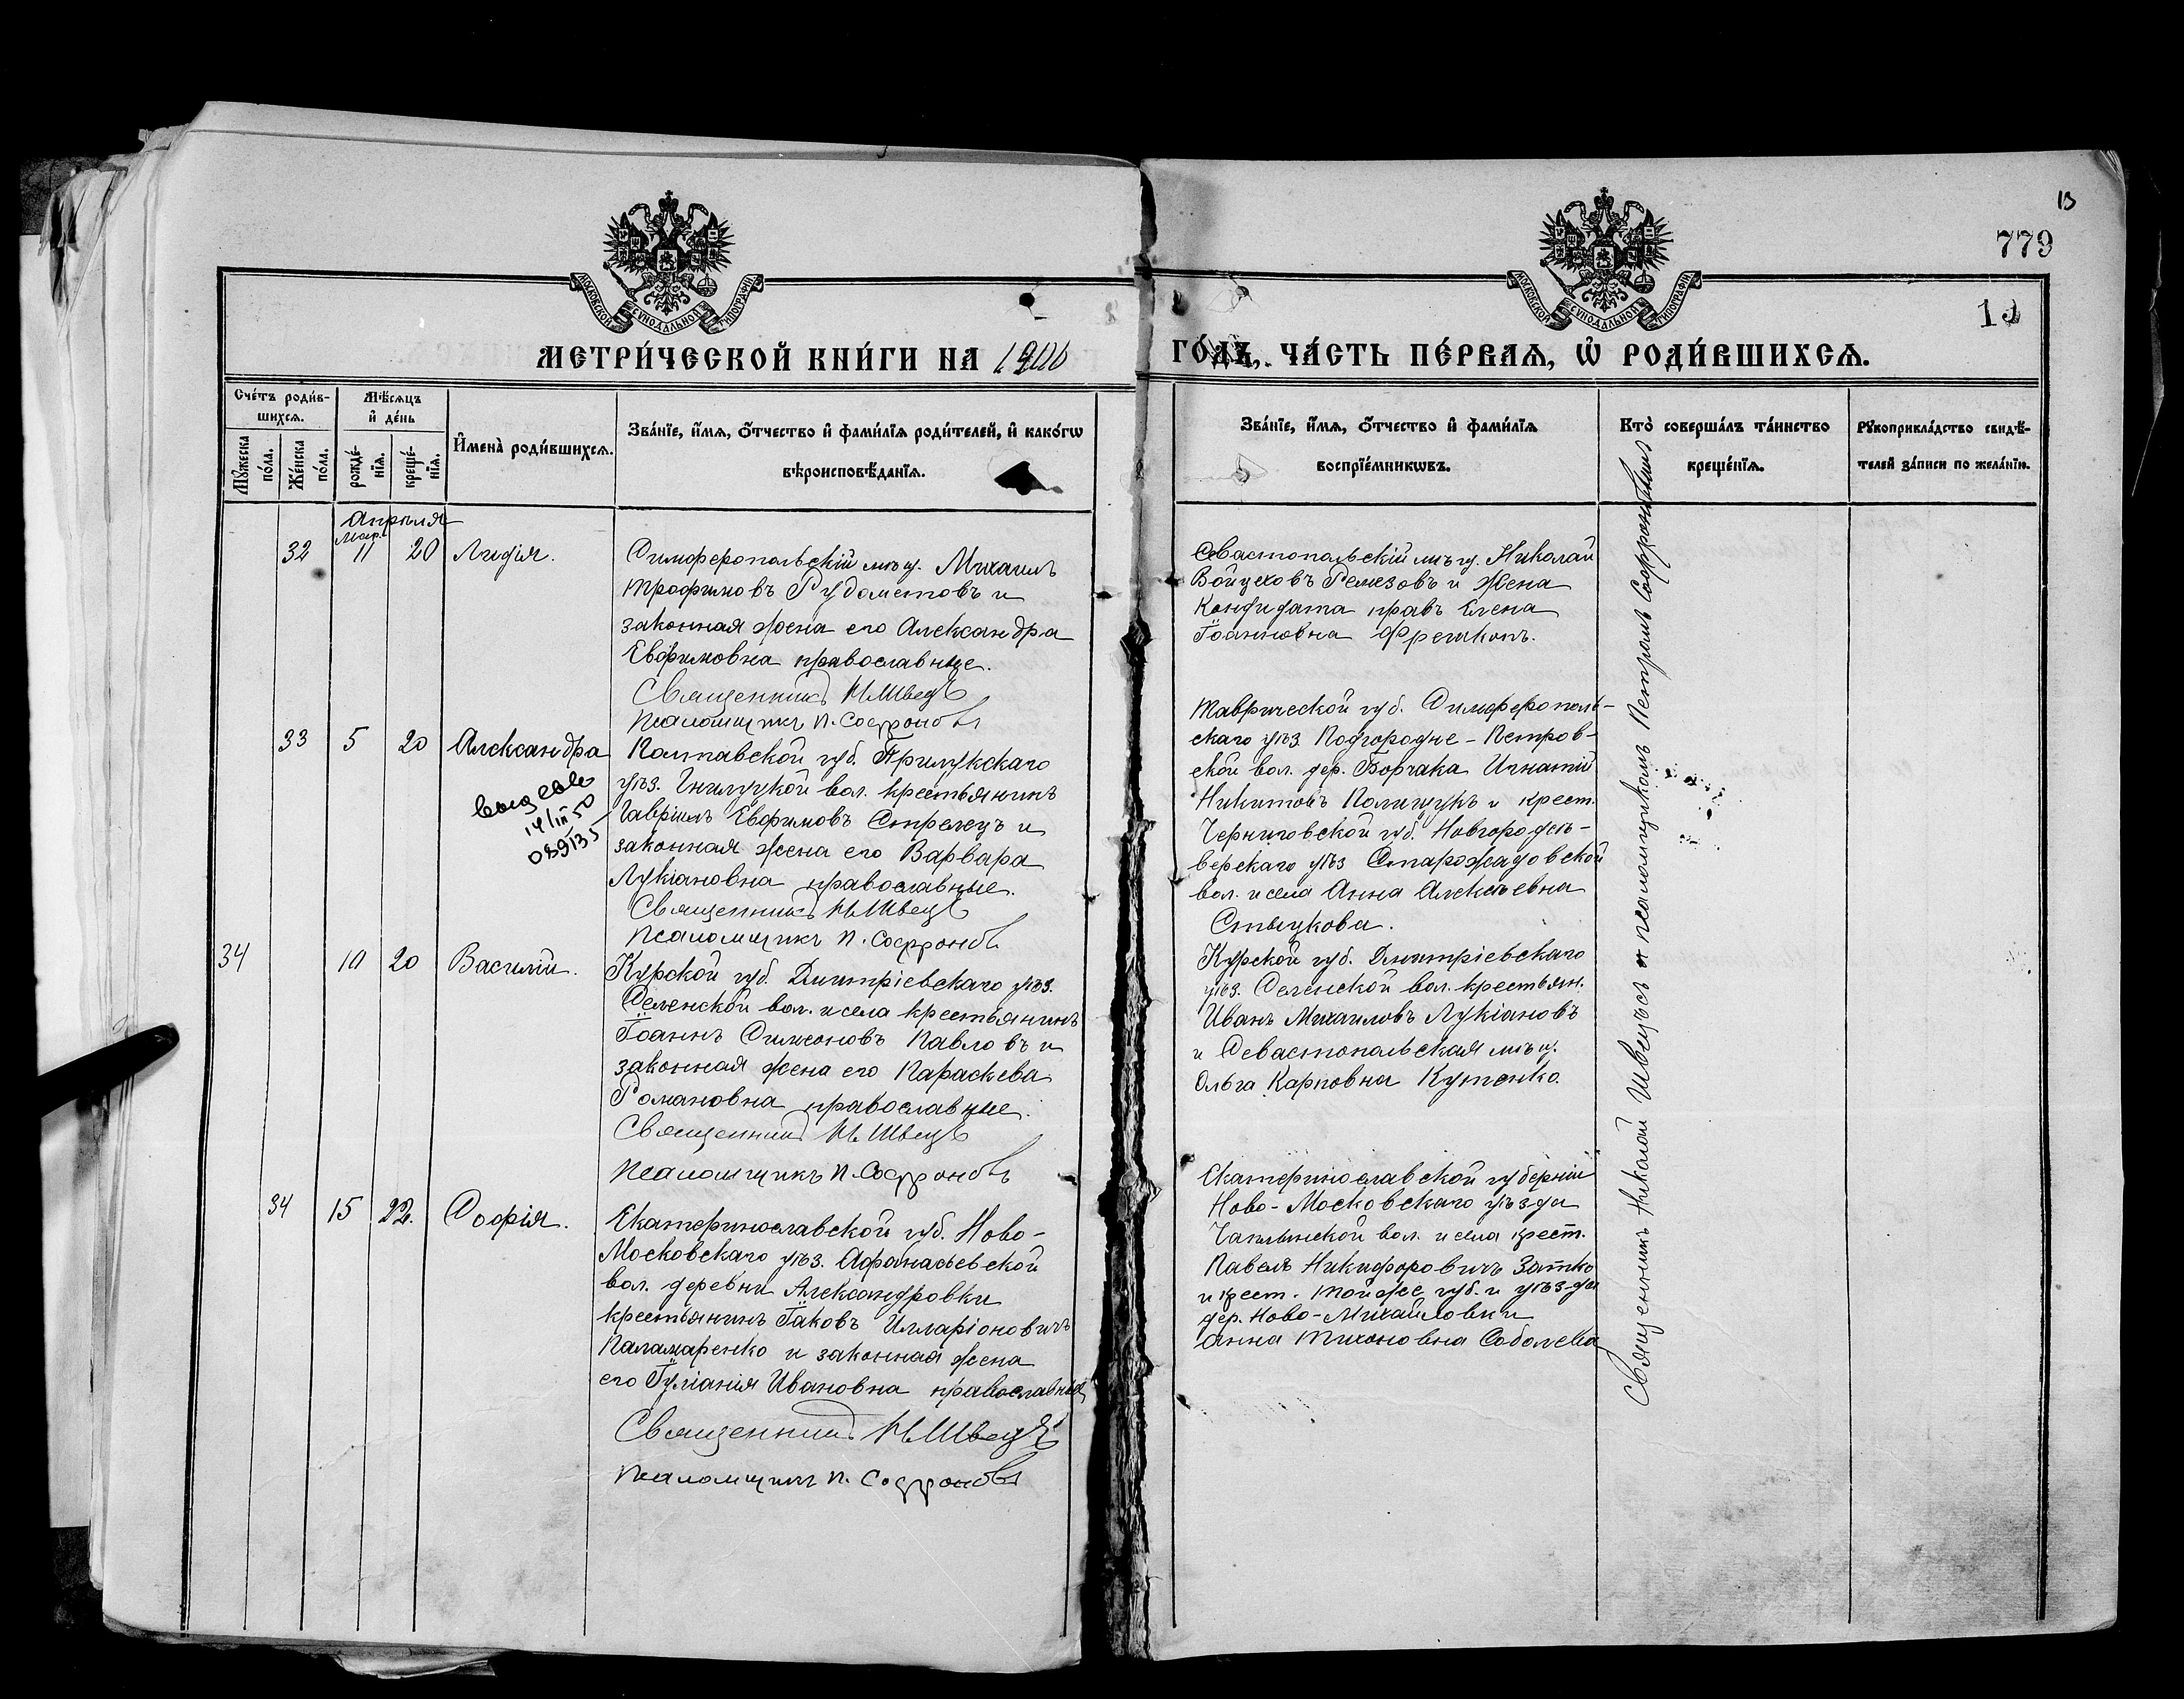 13
779
МОСКОВСКОЙ СУНОДАЛЬНОЙ ТИПОГРАФІИ.
МОСКОВСКОЙ СУНОДАЛЬНОЙ ТИПОГРАФІИ.
МЕТРИ́ЧЕСКОЙ КНИ́ГИ НА 1906
ГО́ДЪ, ЧА́СТЬ ПЕ́РВАЯ, Ѡ҆ РОДИ́ВШИХСЯ.
Сче́тъ роди́в-
шихся.
Мꙋжеска по́ла.
Же́нска по́ла.
Мѣ́сяцъ
и҆ де́нь
рожде́-
нїя.
креще́-
нїя.
И҆мена̀ роди́вшихся.
Зва́нїе, и҆́мя, ѻ҆́тчество и҆ фами́лїя роди́телей, и҆ како́гѡ
вѣроисповѣ́данїя.
Зва́нїе, и҆́мя, ѻ҆́тчество и҆ фами́лїя
воспрїе́мникѡвъ.
Кто̀ соверша́лъ та́инство
креще́нїя.
Рꙋкоприкла́дство свидѣ́-
телей за́писи по жела́нїю.
Апрѣля
Мар.
32 11 20 Лидія.
Симферопольскій мѣщ. Михаилъ
Трофимовъ Рудометовъ и
законная жена его Александра
Евфимовна православные.
Священникъ Н. Швецъ
Псаломщикъ П. Софроновъ
Севастопольскій мѣщ. Николай
Войцеховъ Ремезовъ и жена
Кандидата правъ Елена
Іоанновна
33 5 20 Александра
14/III 50
089135
Полтавской губ. Прилукскаго
уѣз. Гнилуцкой вол. крестьянинъ
Гавріилъ Евфимовъ Стрелецъ и
законная жена его Варвара
Лукіановна православные.
Священникъ Н. Швецъ
Псаломщикъ П. Софроновъ
Таврической губ. Симферополь-
скаго уѣз. Подгородне-Петров-
ской вол. дер. Борчака Игнатій
Никитовъ Полищукъ и крест.
Черниговской губ. Новгородсѣ-
верскаго уѣз. Старожадовской
вол. и села Анна Алексѣевна
34 10 20 Василій.
Курской губ. Дмитріевскаго уѣз.
Селенской вол. и села крестьянинъ
Іоаннъ Симеоновъ Павловъ и
законная жена его Параскева
Романовна православные.
Священникъ Н. Швецъ
Псаломщикъ П. Софроновъ
Курской губ. Дмитріевскаго
уѣз. Селенской вол. крестьян.
Иванъ Михаиловъ Лукіановъ
и Севастопольская мѣщ.
Ольга Карповна Кутенко.
34 15 22. Софія.
Екатеринославской губ. Ново-
Московскаго уѣз. Афанасьевской
вол. деревни Александровки
крестьянинъ Іаковъ Илларіоновичъ
Паламаренко и законная жена
его Іуліанія Ивановна православные
Священникъ Н. Швецъ
Псаломщикъ П. Софроновъ
Екатеринославской губерніи
Ново-Московскаго уѣзда
вол. и села крест.
Павелъ Никифоровичъ Затко
и крест. той же губ. и уѣзда
дер. Ново-Михайловки
Анна Тихоновна Соболева
Священникъ Николай Швецъ съ псаломщикомъ Петромъ Софроновымъ